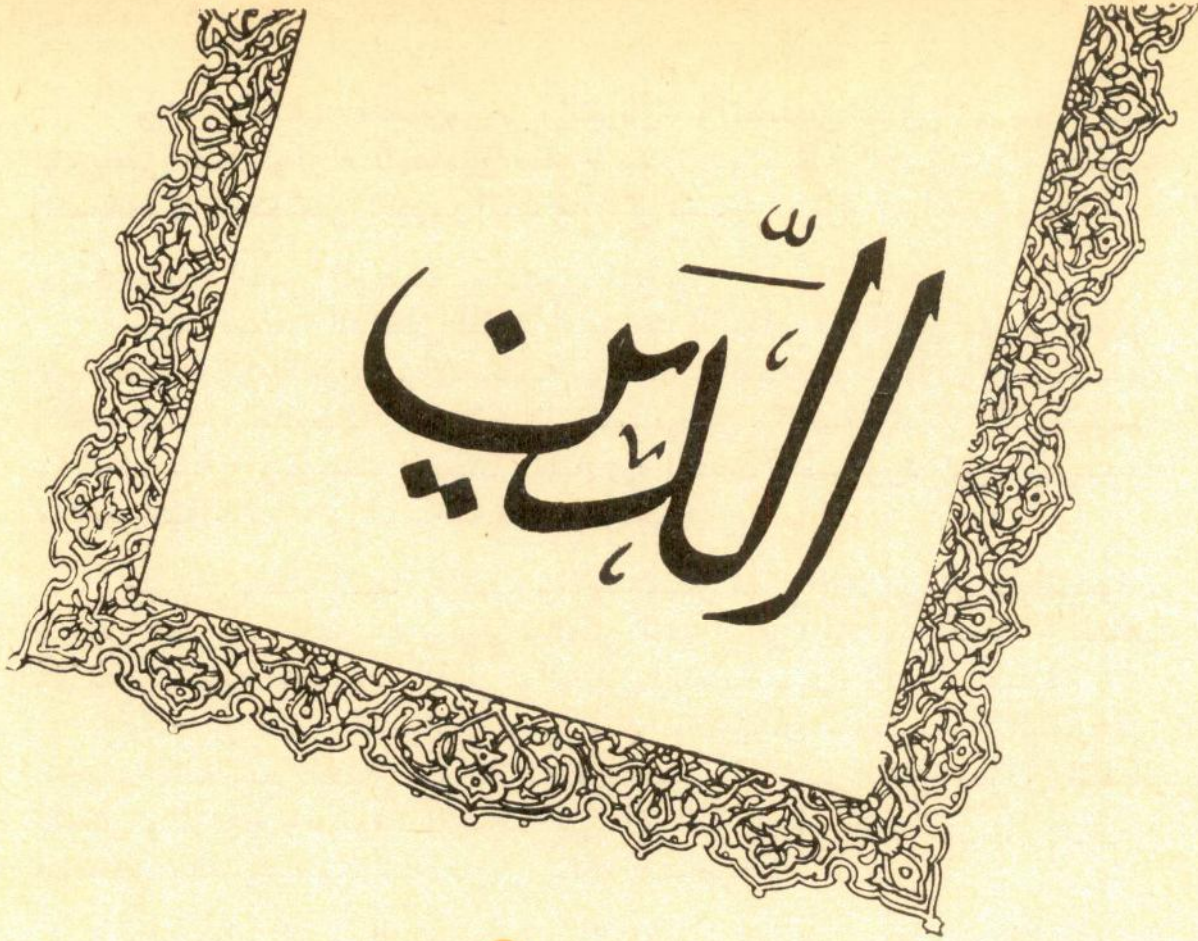 الدِّين